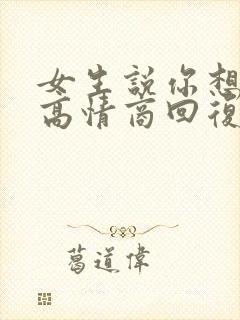 女生説你想
高情商回復
葛道偉